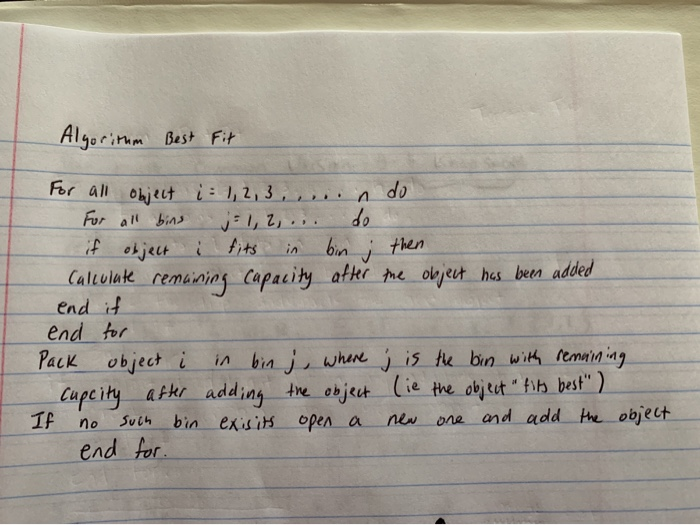 Algorithm Best Fit
For all object i = 1, 2, 3, .... n do
For all bins j = 1, 2, ... do
if object i fits in bin j then
Calculate remaining capacity after the object has been added
end if
end for
Pack object i in bin j, where j is the bin with remaining
capcity after adding the object (ie the object "fits best")
If no such bin exisits open a new one and add the object
end for.